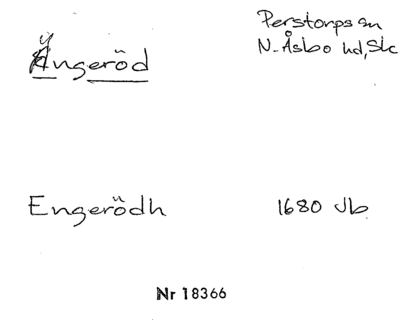 Ängeröd
Perstorps sn
N. Åsbo hd, Sk
Engerödh
1680 Jb
Nr 18366